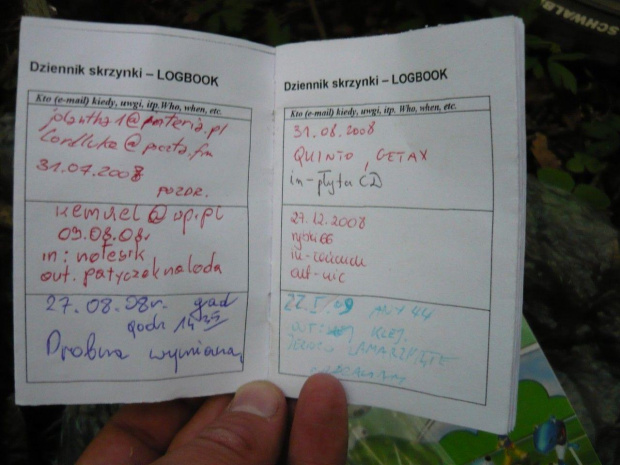 Dziennik skrzynki – LOGBOOK
Kto (e-mail) kiedy, uwgi, itp. Who, when, etc.
@poczta.fm
31.07.2008
POZDR.
kemsel@op.pl
09.08.08r.
in: notesik
out. patyczek na loda
27.08.08r. grad
godz 14 35
Drobna wymiana,
Dziennik skrzynki – LOGBOOK
Kto (e-mail) kiedy, uwgi, itp. Who, when, etc.
31.08.2008
QUINTO, GETAX
in-płyta CD
27.12.2008
rybki66
out-nic
ANY 44
KLEJ
SCHWALBE